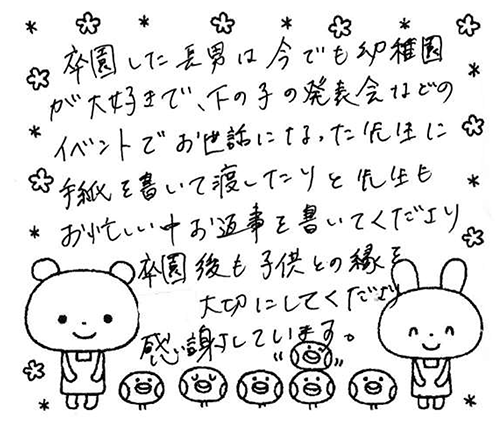 卒園した長男は今でも幼稚園
が大好きで、下の子の発表会などの
イベントでお世話になった先生に
手紙を書いて渡したりと先生も
お忙しい中お返事を書いてくださり
卒園後も子供との縁を
大切にしてくださり
感謝しています。